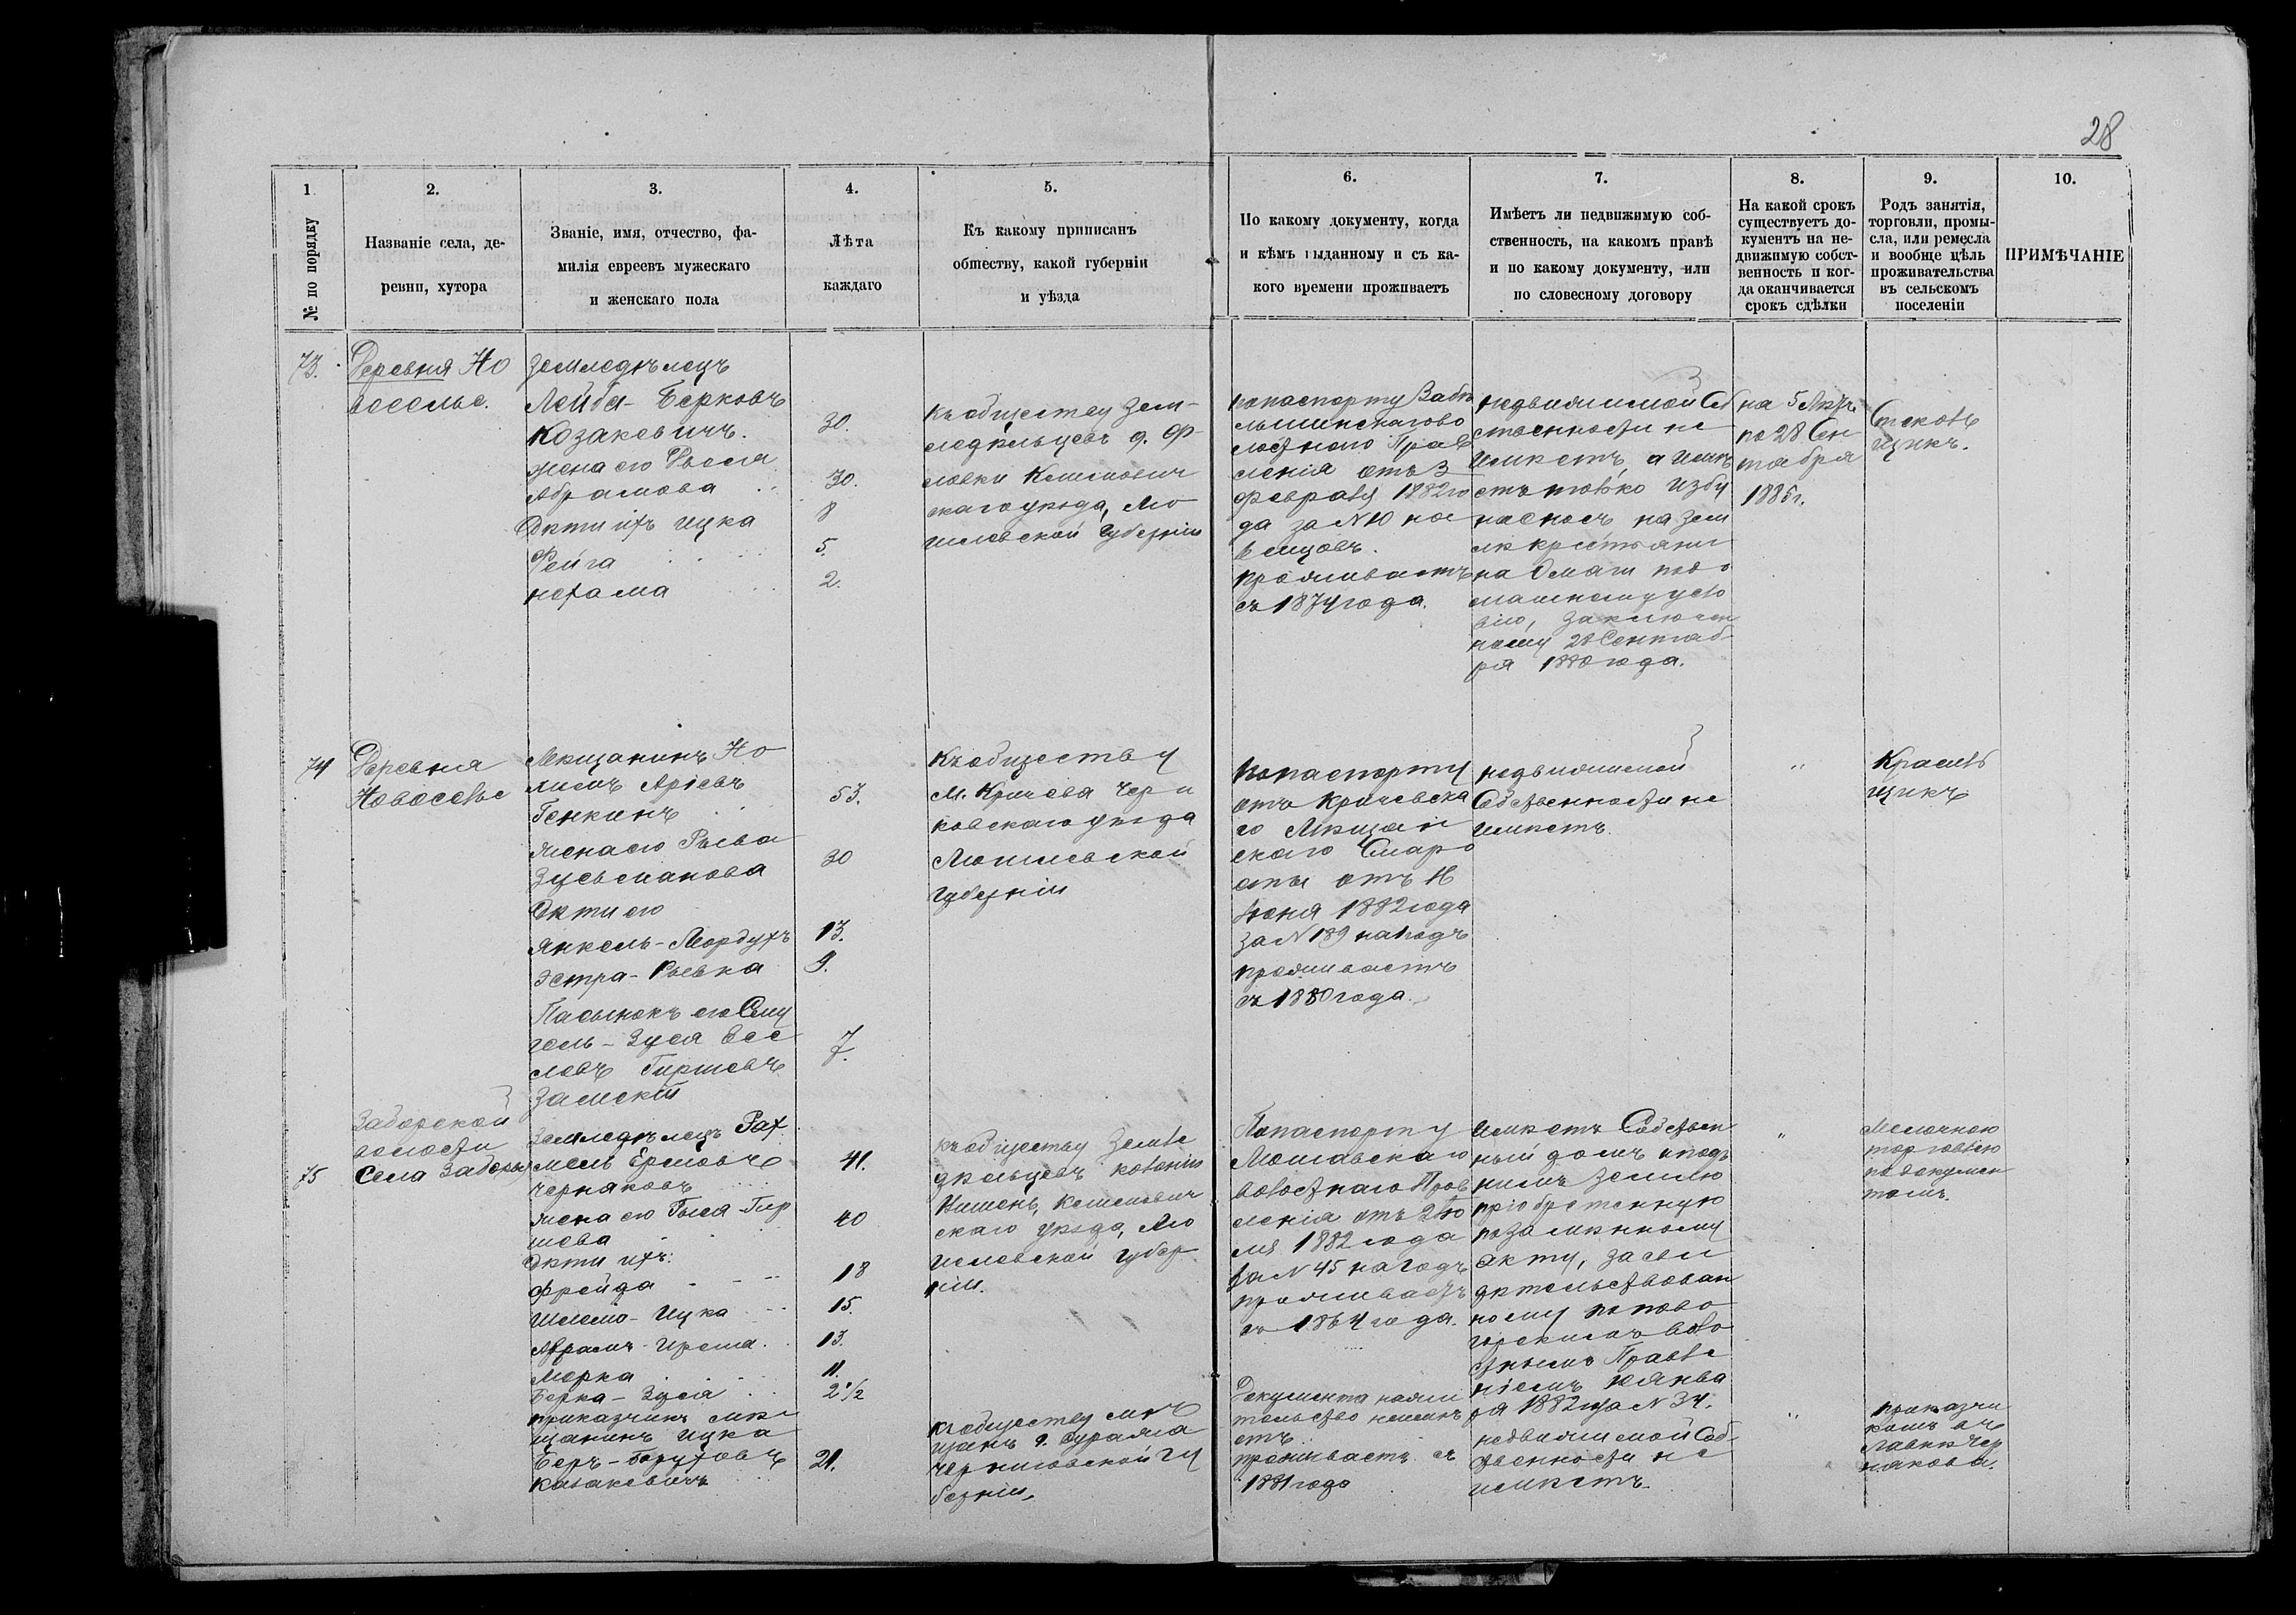 28
1
№ по порядку
2.
Названіе села, де-
ревни, хутора
3.
Званіе, имя, отчество, фа-
милія евреевъ мужескаго
и женскаго пола
4.
Лѣта
каждаго
5.
Къ какому приписанъ
обществу, какой губерніи
и уѣзда
6.
По какому документу, когда
и кѣмъ выданному и съ ка-
кого времени проживаетъ
7.
Имѣетъ ли недвижимую соб-
ственность, на какомъ правѣ
и по какому документу, или
по словесному договору
8.
На какой срокъ
существуетъ до-
кументъ на не-
движимую собст-
венность и ког-
да оканчивается
срокъ сдѣлки
9.
Родъ занятія,
торговли, промы-
сла, или ремесла
и вообще цѣль
проживательства
въ сельскомъ
поселеніи
10.
ПРИМѢЧАНІЕ
73.
Деревня Но
воселье.
Земледѣлецъ
Лейба-Берковъ
Козакевичъ.
жена его
Абрамова
Дѣти ихъ Ицка
Фейга
Нехама
30.
30.
8
5.
2.
Къ обществу Зем-
ледѣльцевъ д.
Климович
скаго уѣзда, Мо
гилевской Губерніи
По паспорту
лостнаго Прав
ленія отъ 3
Февраля 1882 го
да за №10 на
6 месяцовъ.
Проживаетъ
съ 1874 года.
недвижимой Соб
ственности не
имѣетъ, а имѣ
етъ только избу
на сносъ на зем
лѣ крестьяни
на
машнему усло
вію, заключен
ному 28 Сентяб-
ря 1880 года.
на 5 Лѣтъ
по 28 Сен
тября
1885 г.
Стеколь
щикъ.
74
Деревня
Новоселье
Мещанинъ Но
химъ Аріевъ
Генкинъ
жена его Рыва
Зусьманова
Дѣти его
Янкель-Мордухъ
Эстра-Рывка
Пасынокъ его Сму
гель-Зуся
Гиршевъ
53.
30
13.
9.
7.
Къ обществу
М. Кричева Чери
ковскаго уѣзда
Могилевской
Губерніи
По паспорту
отъ Кричевска
го Мѣщан
скаго Старо
сты отъ 16
Іюня 1882 года
За №189 на годъ
проживаетъ
съ 1880 года.
недвижимой
Собственности не
имѣетъ.
"
Красиль
щикъ
75
Заборской
волости
Села Заборья
Земледѣлецъ Рах
мель
Черняковъ
жена его Рыся-Гир
шева
Дѣти ихъ:
Фрейда
Шлемо-Ицка
Абрамъ-
Морка
Берка-Зуся
приказчикъ мѣ
щанинъ Ицка
Беръ-Боруховъ
Казакевичъ
41.
40
18
15.
13.
11.
2 1/2
21.
Къ обществу Земле
дѣльцевъ колоніи
Вишень, Климович
скаго уѣзда, Мо
гилевской Губер
ніи.
Къ обществу мѣ
щанъ г. Суража
Черниговской Гу
берніи.
По паспорту
волостнаго Прав
ленія отъ 2 Ію
ля 1882 года
за №45 на годъ
проживаетъ
съ 1864 года.
Документа на жи
тельство не имѣ
етъ.
проживаетъ съ
1881 года
имѣетъ Собствен
ный домъ и подъ
нимъ землю
пріобретенную
по
акту, засви
дѣтельствован
ному
Воло
стнымъ Правле
ніемъ
ря 1882 за №34.
недвижимой Соб-
ственности не
имѣетъ.
"
"
Мелочною
торговлею
по докумен
тамъ.
Приказчи
комъ въ
Лавкѣ Чер
някова.